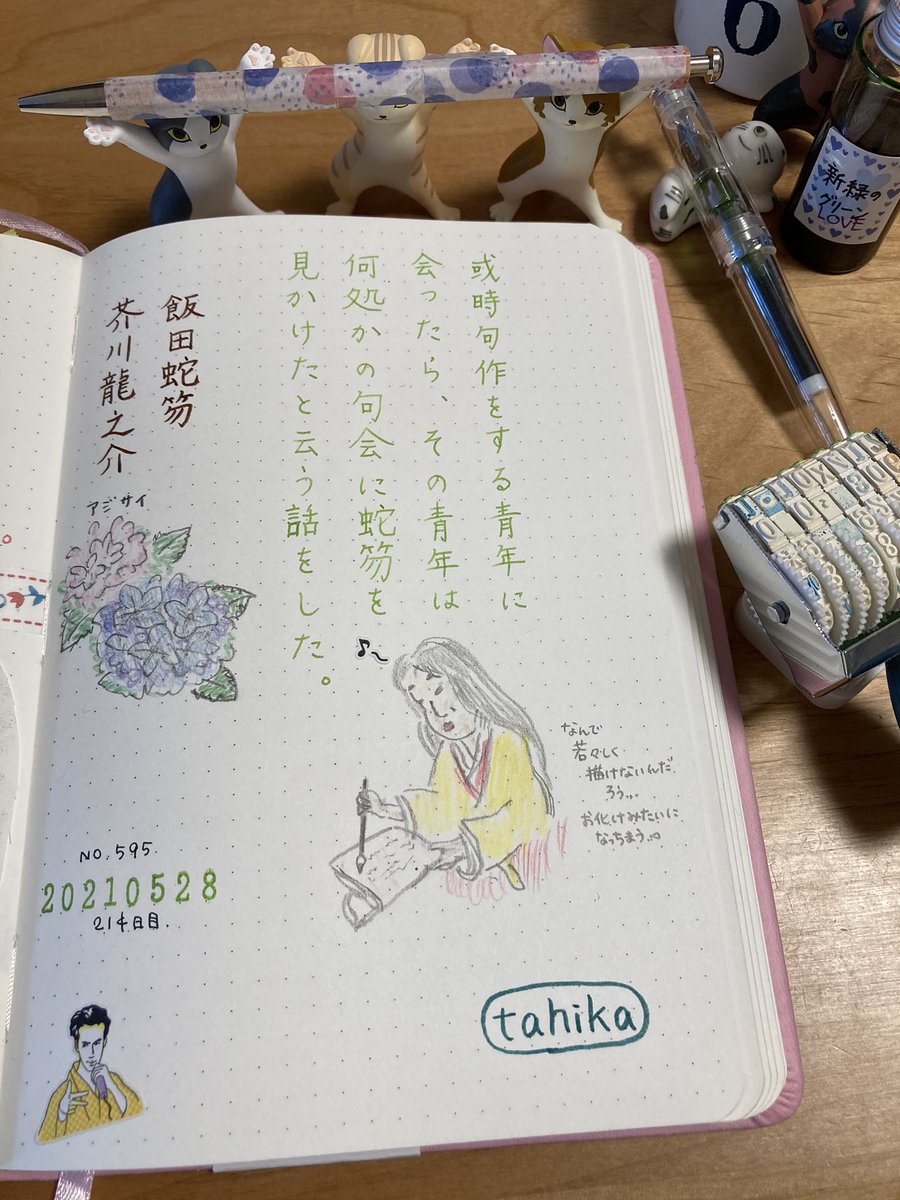 或時句作をする青年に
会ったら、その青年は
何処かの句会に蛇笏を
見かけたと云う話をした。
飯田蛇笏
芥川龍之介
アジサイ
なんで
若々しく
描けないんだ
ろう…
お化けみたいに
なっちまう
NO.595.
20210528
214日目.
tahika
新緑の
グリーン
LOVE
6